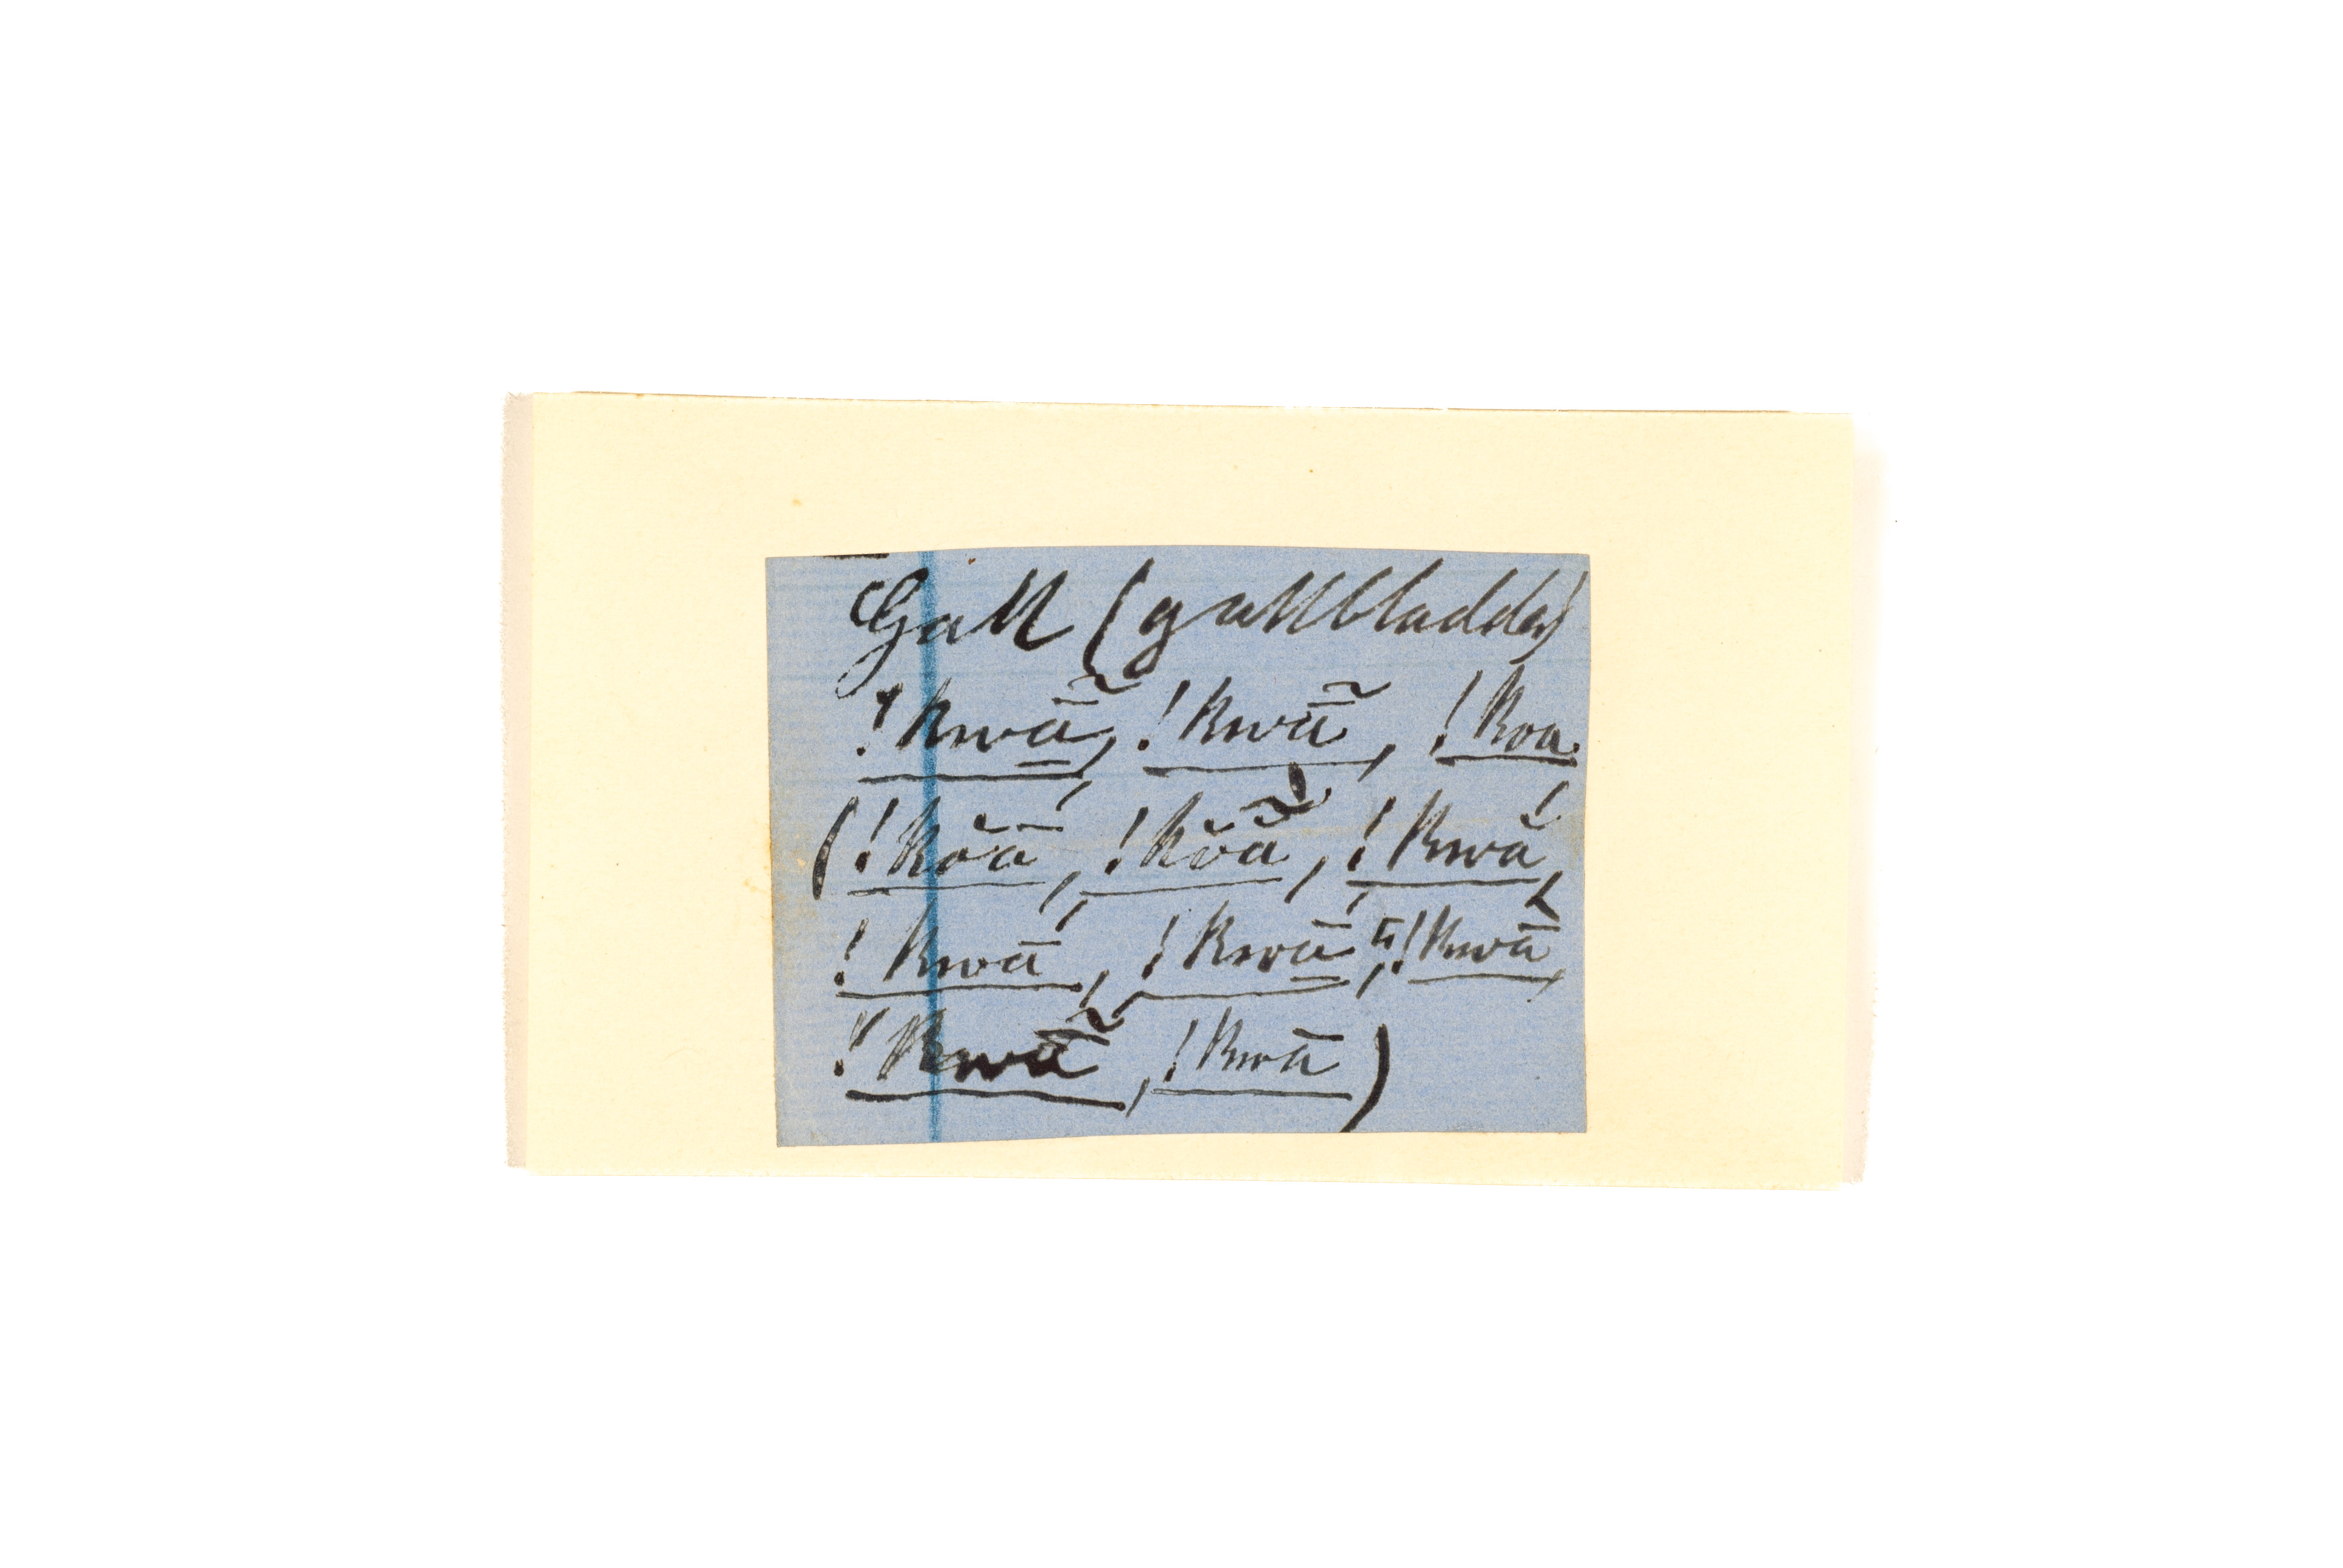 Gall (gallbladder)
!kwā̰̃, !kwā̃, !koa
(!kŏā, !kŏā̃, !kwā́,
!kwā́, !kwā̱́, !kwā,
!kwā̃, !kwā)